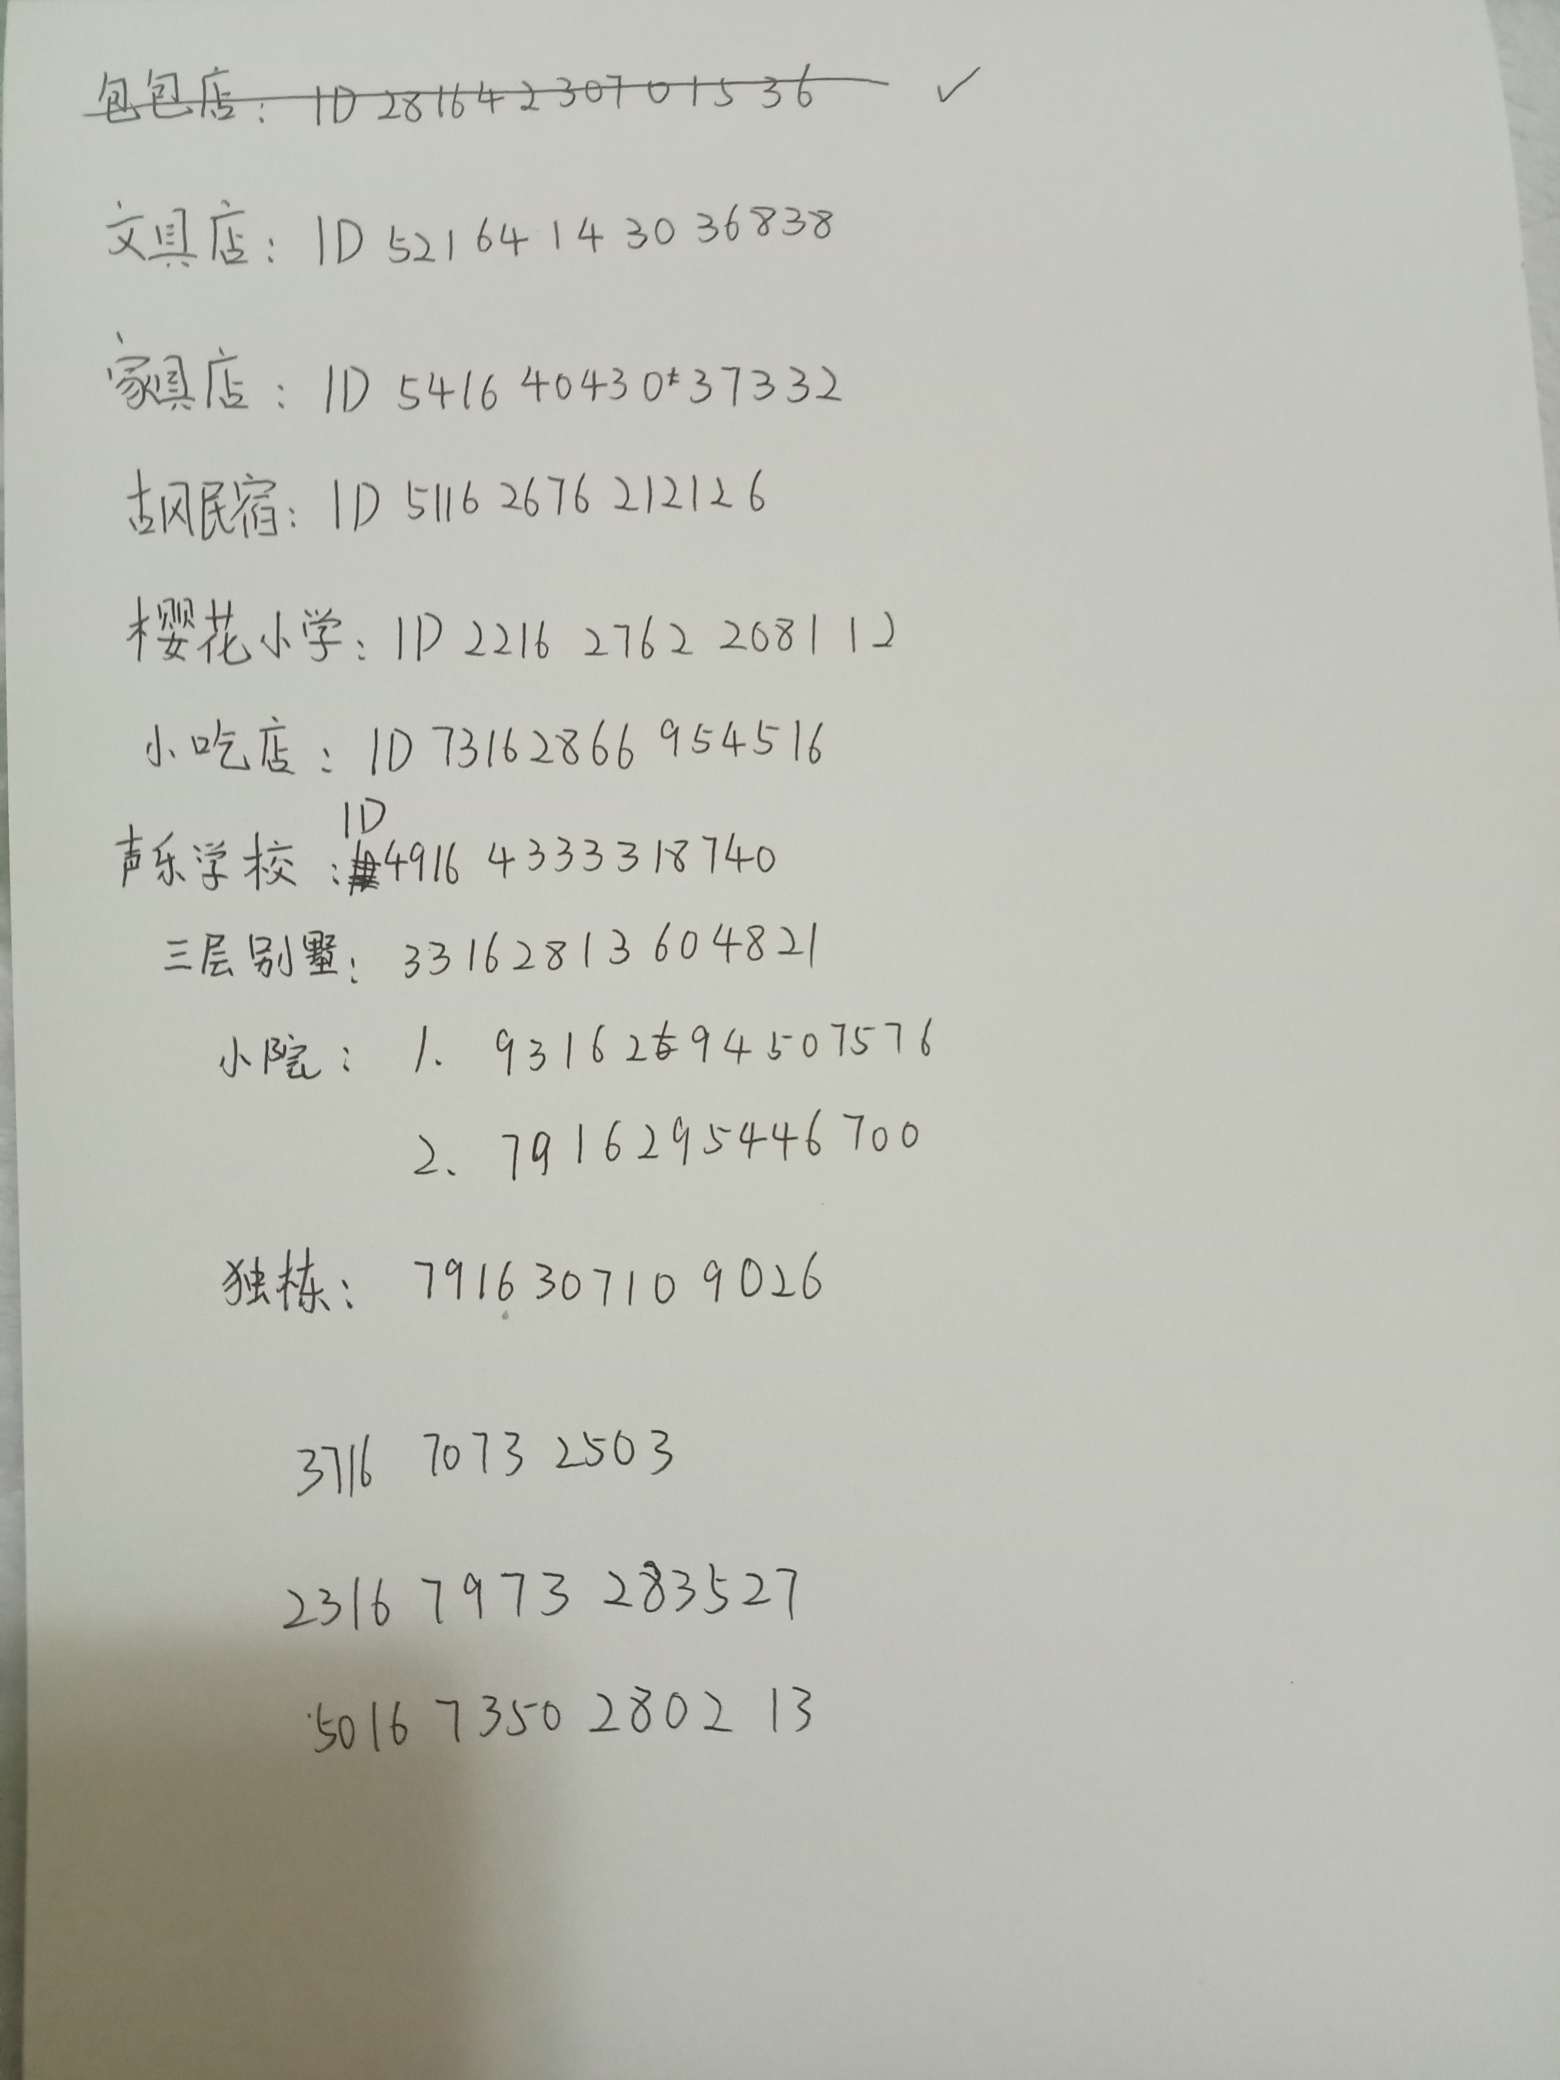 包包店：ID 28164230701536 ✓
文具店：ID 521641430 36838
家具店：ID 5416 40430*37332
古风民宿：ID 5116 2676 212126
樱花小学：ID 2216 2762 208112
小吃店：ID 73162866 954516
ID
声乐学校：4916 4333318740
三层别墅：33162813604821
小院：1. 93162694507576
2、7916295446700
独栋：7916307109026
3716 7073 2503
2316 7973 283527
5016 7350 280213